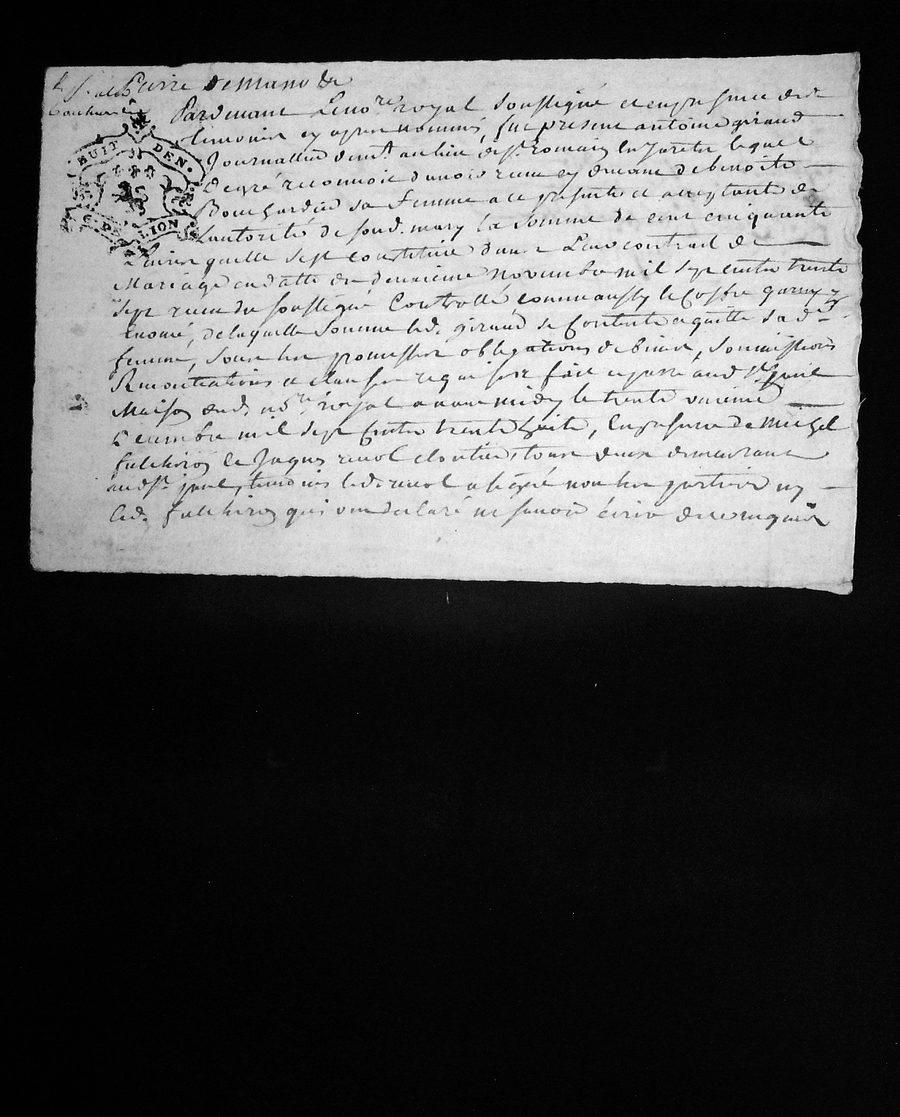 Pardevant Le no.re royal soussigné et en presence des
temoins cy apres nommés, fut present antoine giraud
Journallier dem.t au lieu de s.t romain en Jarest lequel
de gré reconnoit d'avoir receu cy devant de benoite
sa femme a ce presente et acceptante de
L'autorité de sond. mary la somme de cent cinquante
Livres quelle s'est constituée dans Leur contrat de
Mariage en datte du deuxieme novembre mil sept cents trente
sept receu du soussigné Controllé comme aussy le coffre garny y
Enoncé, de laquelle somme led. giraud se contente et quitte sa d.
femme, sous les promesses obligations de biens, soumissions
Renontiations et clauses requises fait et passé aud. s.t
Maison dud. no.re royal avant midy le trente unieme
Decembre mil sept cents trente huit, En presence de
et Jaques cloutier, tous deux demeurant
aud. s.t temoins led. a signé non les parties ny
Led. qui ont declaré ne savoir écrire de ce enquis
BUIT DEN.
LION